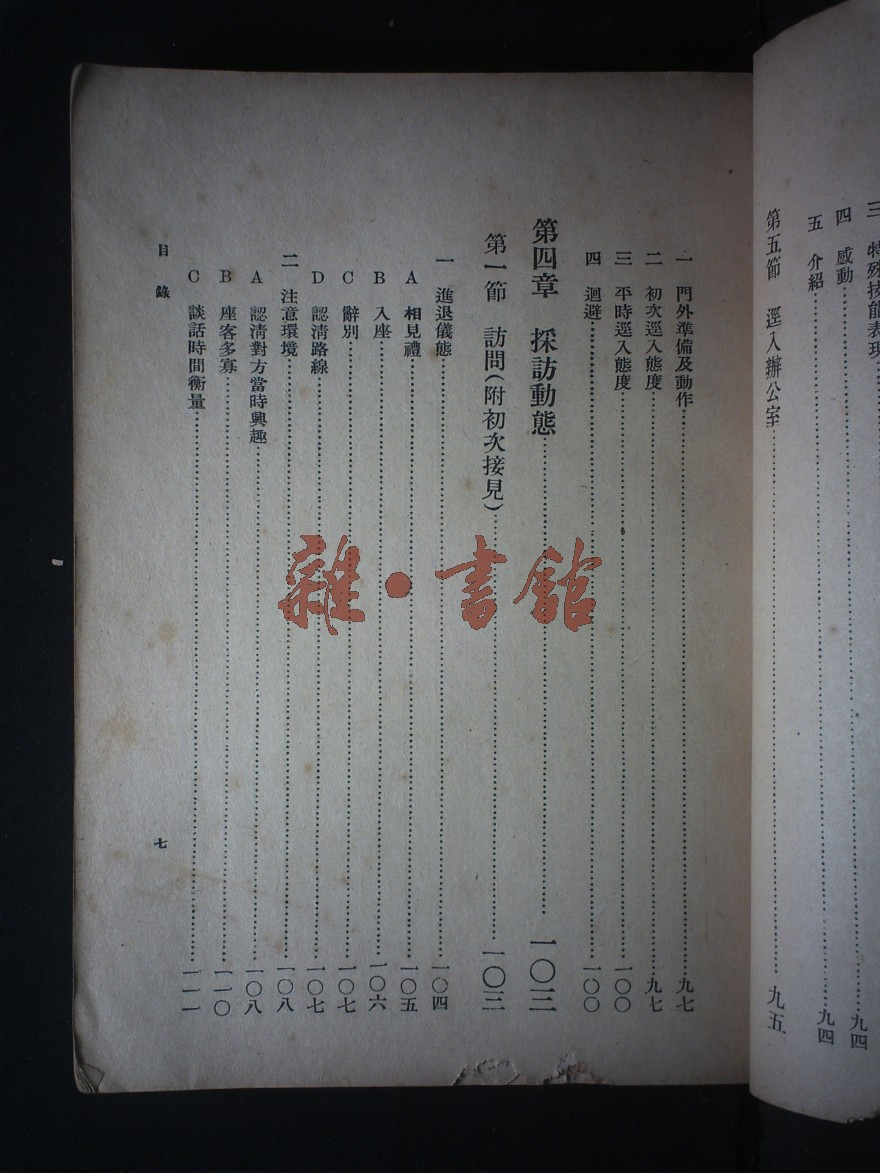 三 特殊技能表現
四 感動……九四
五 介紹……九四
第五節 逕入辦公室……九五
一 門外準備及動作……九七
二 初次逕入態度……九七
三 平時逕入態度……一〇〇
四 迴避……一〇〇
第四章 採訪動態……一〇三
第一節 訪問(附初次接見)……一〇三
一 進退儀態……一〇四
A 相見禮……一〇五
B 入座……一〇六
C 辭別……一〇七
D 認清路線……一〇七
二 注意環境……一〇八
A 認清對方當時興趣……一〇八
B 座客多寡……一一〇
C 談話時間衡量……一一一
目錄
七
雜·書館